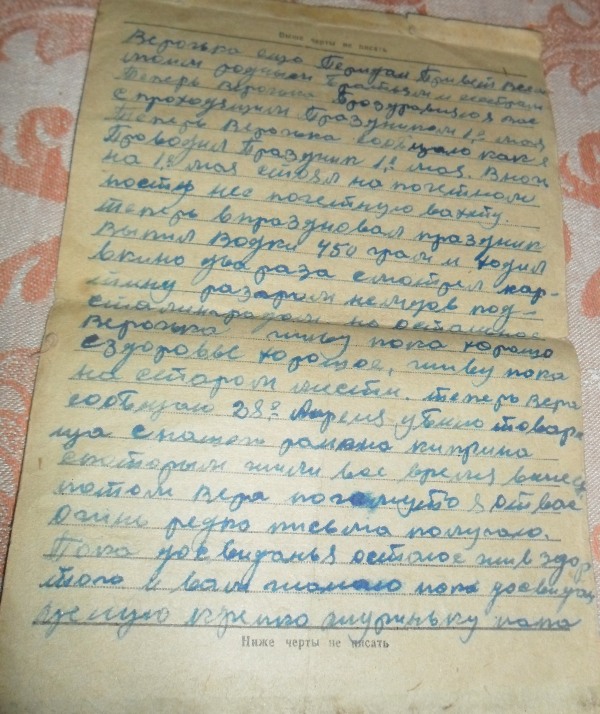 Выше черты не писать
Верочька ещо Передай Привет Всем
моим родным братьям и сестрам
теперь Верочька Проздравляю вас
с проходящим Праздником 1е мая
теперь Верочька сообщаю как я
Проводил Праздник 1е мая. В ночь
на 1е мая стоял на почетном
посту нес почетную вахту.
теперь впраздновал праздник
выпил водки 450 грам и ходил
вкино два раза смотрел кар-
тину разгром немцев под-
сталинградом но остальное
Верочька живу пока хорошо
сздоровье хорошое, живу пока
на старом мисти. теперь Вера
сообщаю 28го Апреля убило товари
ща снашего района киприна
скоторым жили все время вмес
потом Вера почемуто я отвас
очинь редко письма получаю.
Пока досвиданья осталось жив здор
того и вам жалаю пока досвидан
целую крепко шуриньку папа
Ниже черты не писать